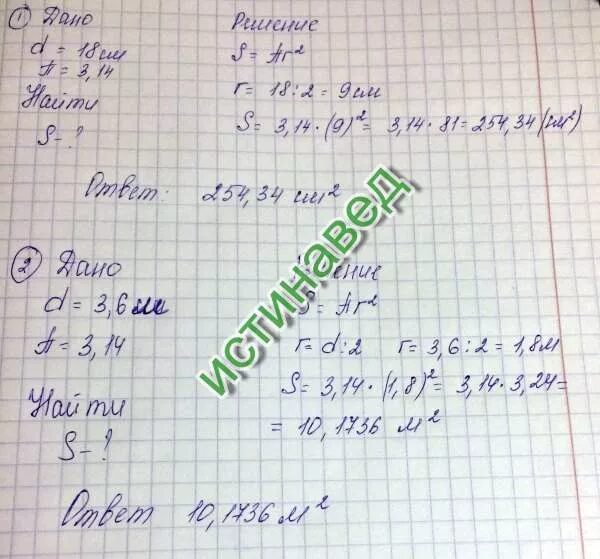 ① Дано Решение
d = 18 см S = πr²
π = 3,14
r = 18 : 2 = 9 см
Найти
S = 3,14 · (9)² = 3,14 · 81 = 254,34 (см²)
S - ?
Ответ: 254,34 см²
② Дано
d = 3,6 м S = πr²
π = 3,14 r = d : 2 r = 3,6 : 2 = 1,8 м
S = 3,14 · (1,8)² = 3,14 · 3,24 =
Найти
= 10,1736 м²
S - ?
Ответ 10,1736 м²
истинавед